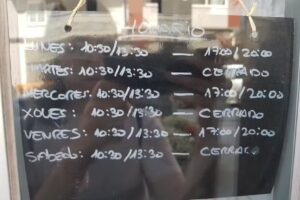 HORARIO
LUNES: 10:30/13:30 — 17:00/20:00
MARTES: 10:30/13:30 — CERRADO
MERCORES: 10:30/13:30 — 17:00/20:00
XOVES: 10:30/13:30 — CERRADO
VENRES: 10:30/13:30 — 17:00/20:00
SÁBADO: 10:30/13:30 — CERRADO